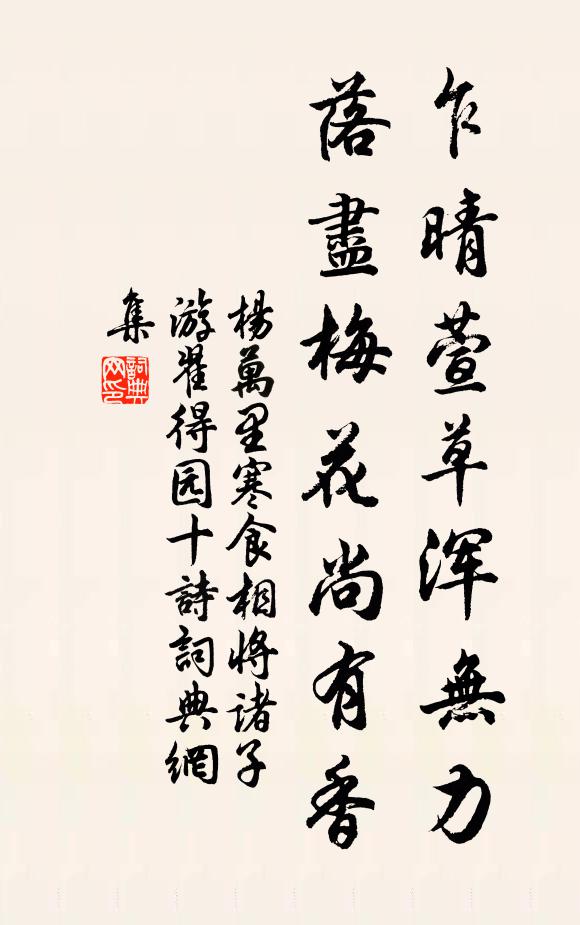 乍晴萱草浑無力
落盡梅花尚有香
楊萬里寒食相将诸子
游翟得园十詩詞典網
集
詞典
网印